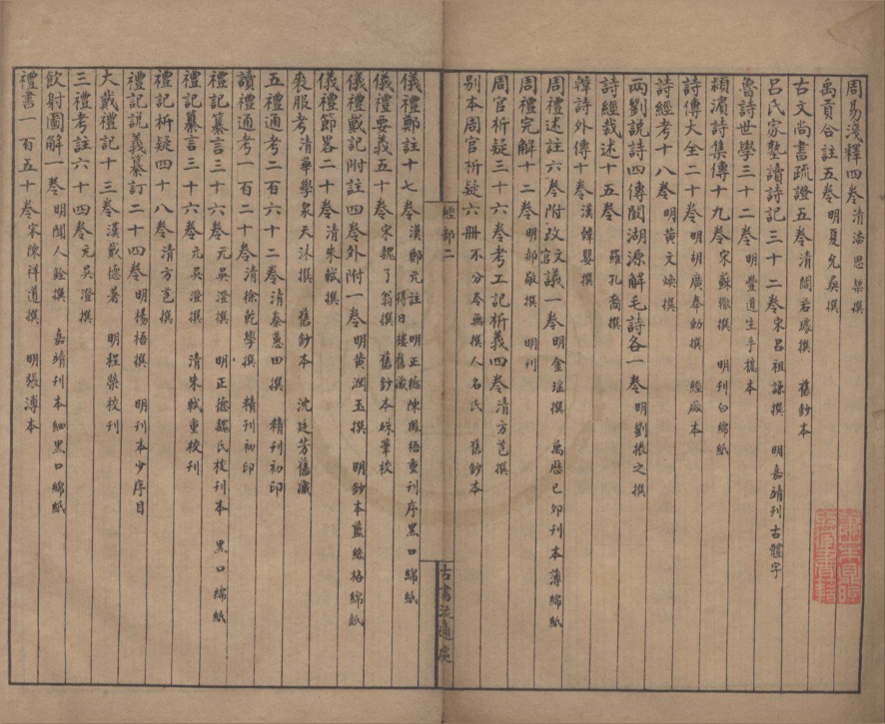 周易淺釋四卷 清潘思榘撰
禹貢合註五卷 明夏允彝撰
古文尚書疏證五卷 清閻若璩撰 舊鈔本
呂氏家塾讀詩記三十二卷 宋呂祖謙撰 明嘉靖刊古體字
魯詩世學三十二卷 明豐道生手稿本
穎濱詩集傳十九卷 宋蘇轍撰 明刊白綿紙
詩傳大全二十卷 明胡廣奉勅撰 經廠本
詩經考十八卷 明黃文煥撰
兩劉說詩四傳闡湖源解毛詩各一卷 明劉振之撰
詩經哉述十五卷 羅孔裔撰
韓詩外傳十卷 漢韓嬰撰
周禮述註六卷附改官文議一卷 明金瑤撰 萬曆己卯刊本薄綿紙
周禮完解十二卷 明郝敬撰 明刊
周官析疑三十六卷考工記析義四卷 清方苞撰
別本周官析疑六冊 不分卷無撰人名氏 舊鈔本
經部二
古書流通處
儀禮鄭註十七卷 漢鄭元註 明正統陳鳳梧重刊序黑口綿紙
儀禮要義五十卷 宋魏了翁撰 舊鈔本硃筆校 得日樓舊藏
儀禮戴記附註四卷外附一卷 明黃潤玉撰 明鈔本藍絲格綿紙
儀禮節畧二十卷 清朱軾撰
喪服考 清華學泉天沐撰 舊鈔本 沈廷芳舊藏
五禮通考二百六十二卷 清秦蕙田撰 精刊初印
讀禮通考一百二十卷 清徐乾學撰 精刊初印
禮記纂言三十六卷 元吳澄撰 明正德魏氏校刊本 黑口綿紙
禮記纂言三十六卷 元吳澄撰 清朱軾重校刊
禮記析疑四十八卷 清方苞撰
禮記說義纂訂二十四卷 明楊梧撰 明刊本少序目
大戴禮記十三卷 漢戴德著 明程榮校刊
三禮考註六十四卷 元吳澄撰
飲射圖解一卷 明聞人銓撰 嘉靖刊本細黑口綿紙
禮書一百五十卷 宋陳祥道撰 明張溥本